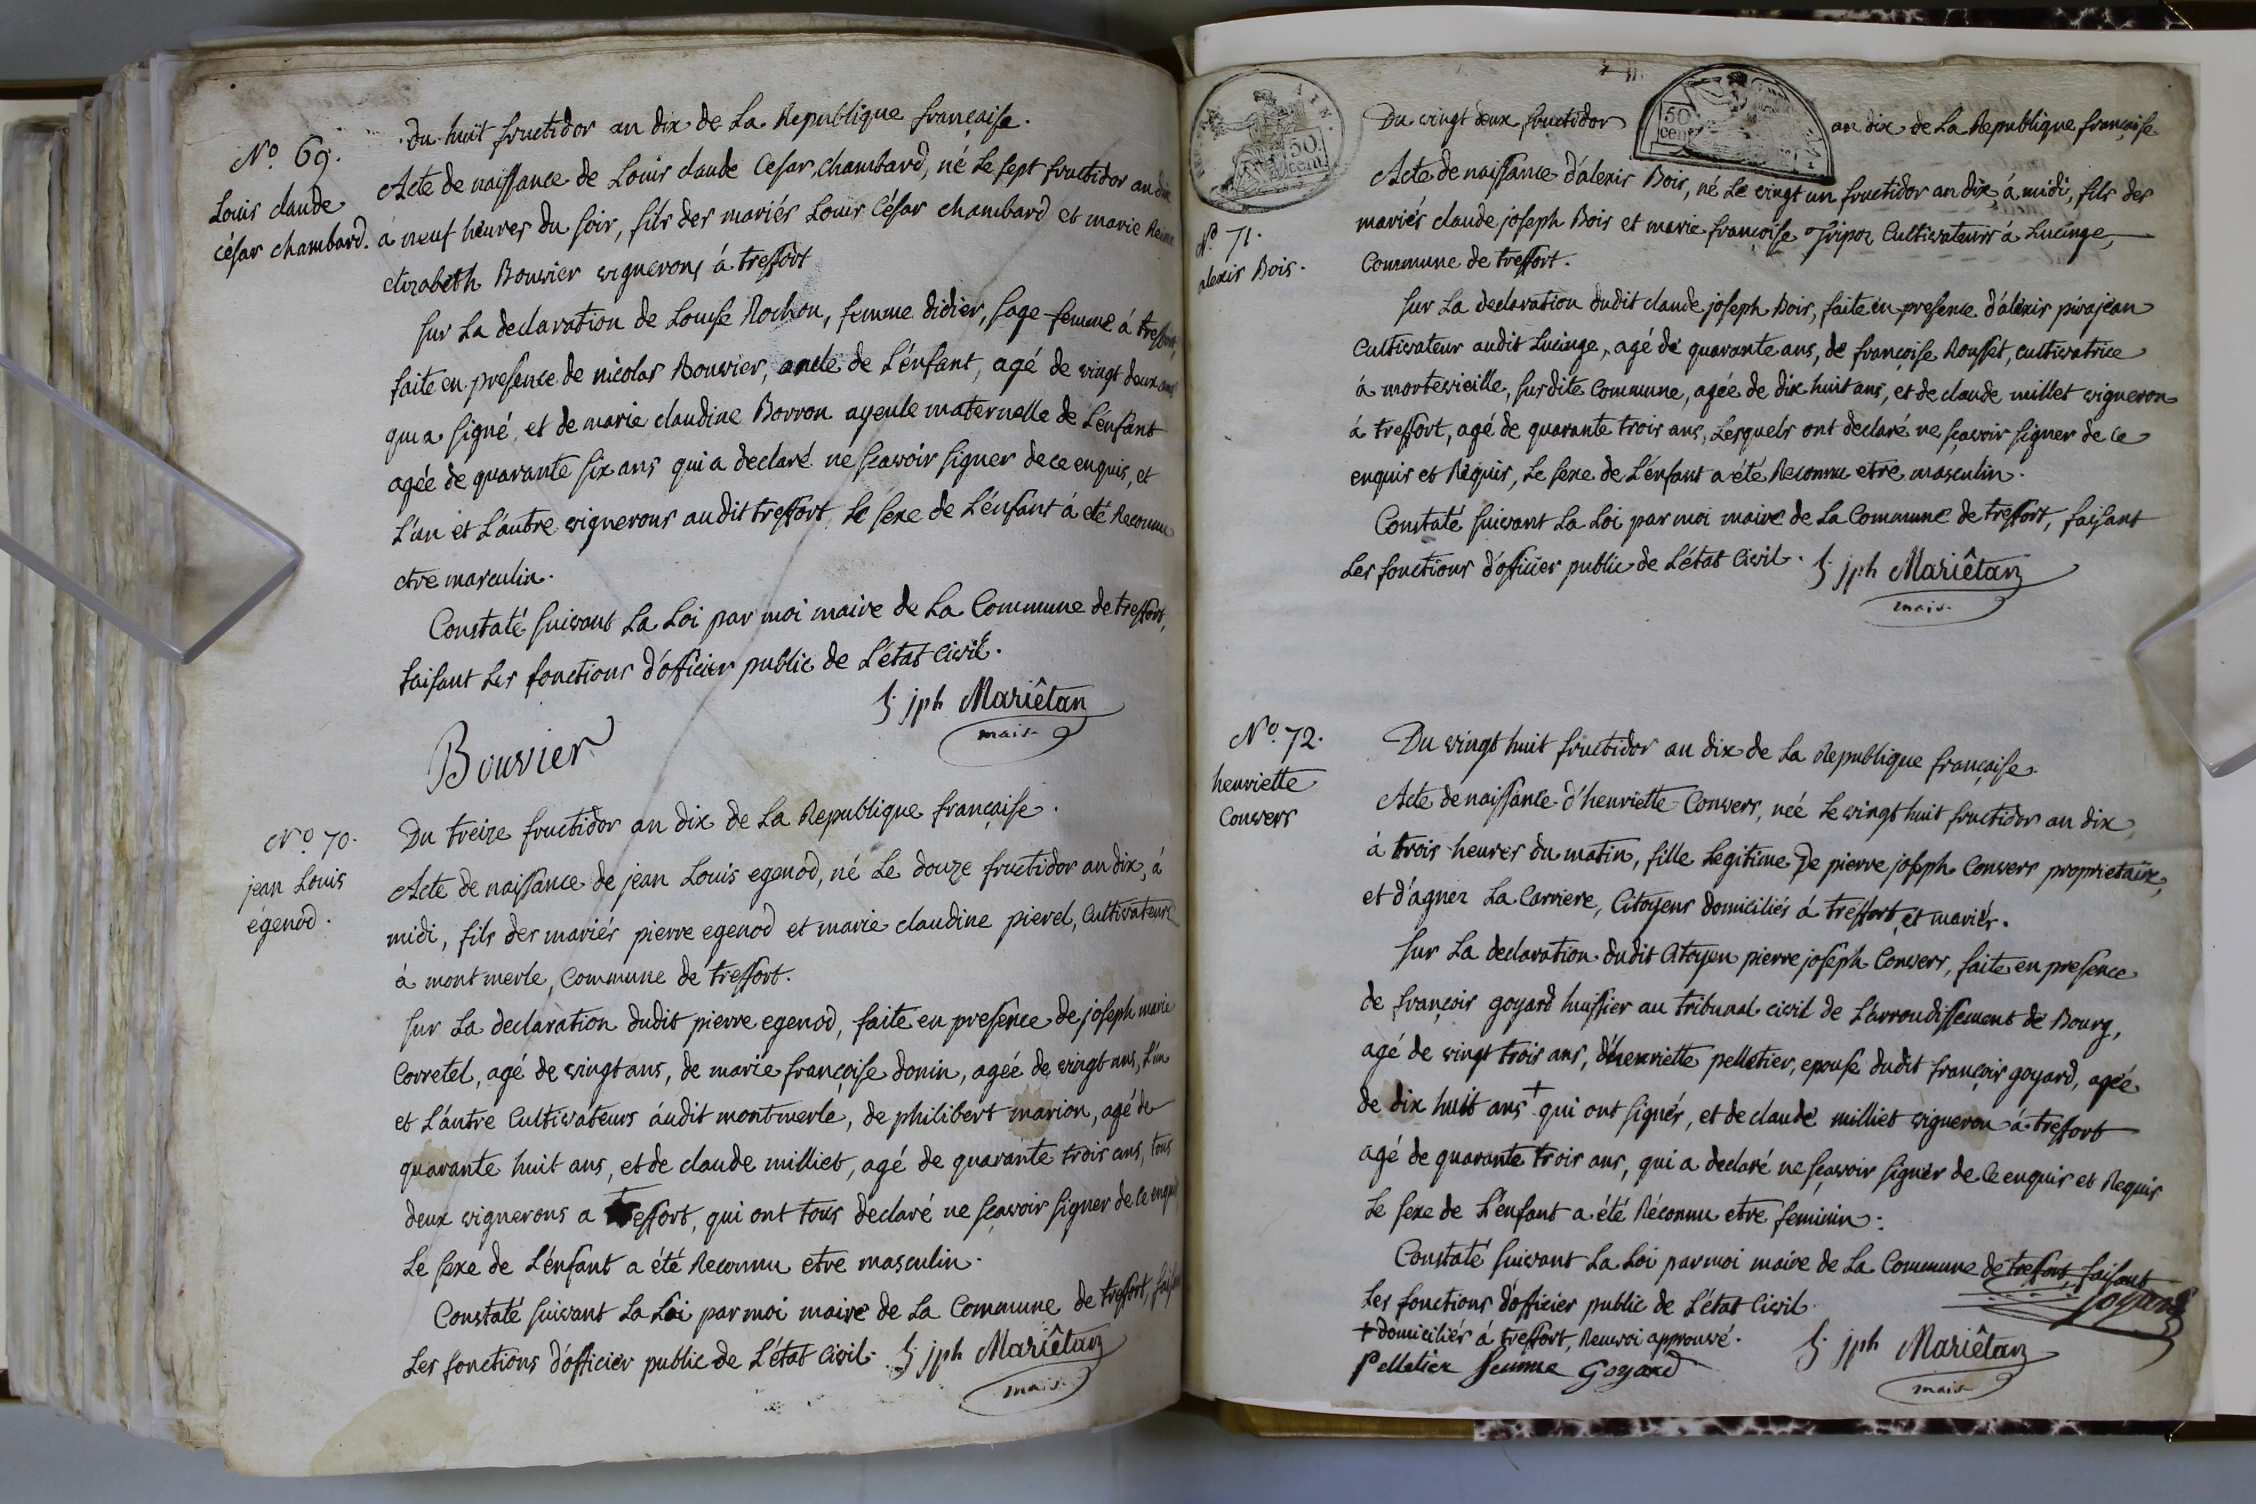 No. 69.
Louis claude
César chambard.
Du huit fructidor an dix de La Republique française.
Acte de naissance de Louis claude Cesar chambard, né Le sept fructidor an dix
à neuf heures du soir, fils des mariés Louis César chambard et marie Reine
elizabeth Bouvier vignerons à treffort
sur La declaration de Louise Rochon, femme didier, sage femme à treffort,
faite en presence de nicolas Bouvier, oncle de L'enfant, agé de vingt deux ans
qui a signé, et de marie claudine Borron ayeule maternelle de L'enfant
agée de quarante six ans qui a declaré ne sçavoir signer de ce enquis, et
L'un et L'autre vignerons audit treffort, Le sexe de L'enfant à eté Reconnu
etre masculin.
Constaté suivant La Loi par moi maire de La Commune de treffort,
faisant Les fonctions d'officier public de L'état Civil.
jph Mariêtan
maire
Bouvier
No. 70.
jean Louis
egenod.
Du treize fructidor an dix de La Republique française.
Acte de naissance de jean Louis egenod, né Le douze fructidor an dix, à
midi, fils des mariés pierre egenod et marie claudine pierel, Cultivateurs
à mont merle, Commune de treffort.
sur La declaration dudit pierre egenod, faite en presence de joseph marie
Corretel, agé de vingt ans, de marie françoise donin, agée de vingt ans, L'un
et L'autre Cultivateurs audit montmerle, de philibert marion, agé de
quarante huit ans, et de claude milliet, agé de quarante trois ans, tous
deux vignerons a treffort, qui ont tous declaré ne sçavoir signer de ce enquis
Le sexe de L'enfant a été Reconnu etre masculin.
Constaté suivant La Loi par moi maire de La Commune de treffort, faisant
Les fonctions d'officier public de L'état Civil. jph Mariêtan
maire
50
cent.
50
cent.
No. 71.
alexis Bois.
Du vingt deux fructidor an dix de La Republique française
Acte de naissance d'alexis Bois, né Le vingt un fructidor an dix, à midi, fils des
mariés claude joseph Bois et marie françoise Tripoz Cultivateurs à Lucinge,
Commune de treffort.
sur La declaration dudit claude joseph Bois, faite en presence d'alexis pirajean
Cultivateur audit Lucinge, agé de quarante ans, de françoise Rousset, cultivatrice
à mortevieille, susdite Commune, agée de dix huit ans, et de claude millet vigneron
à treffort, agé de quarante trois ans, Lesquels ont declaré ne sçavoir signer de ce
enquis et Requis, Le sexe de L'enfant a été Reconnu etre masculin.
Constaté suivant La Loi par moi maire de La Commune de treffort, faisant
Les fonctions d'officier public de L'état Civil. jph Mariêtan
maire
No. 72.
henriette
Convers
Du vingt huit fructidor an dix de La Republique française.
Acte de naissance d'henriette Convers, née Le vingt huit fructidor an dix,
à trois heures du matin, fille Legitime De pierre joseph Convers proprietaire,
et d'agnez La Carriere, Citoyens domiciliés à treffort, et mariés.
sur La declaration dudit Citoyen pierre joseph Convers, faite en presence
de françois goyard huissier au tribunal civil de L'arrondissement de Bourg,
agé de vingt trois ans, d'henriette pelletier, epouse dudit françois goyard, agée
de dix huit ans + qui ont signés, et de claude milliet vigneron à treffort
agé de quarante trois ans, qui a declaré ne sçavoir signer de ce enquis et Requis
Le sexe de L'enfant a été Réconnu etre feminin.
Constaté suivant La Loi par moi maire de La Commune de treffort, faisant
Les fonctions d'officier public de L'état Civil.
+ domiciliés à treffort, Renvoi approuvé.
jph Mariêtan
maire
Pelletier femme Goyard